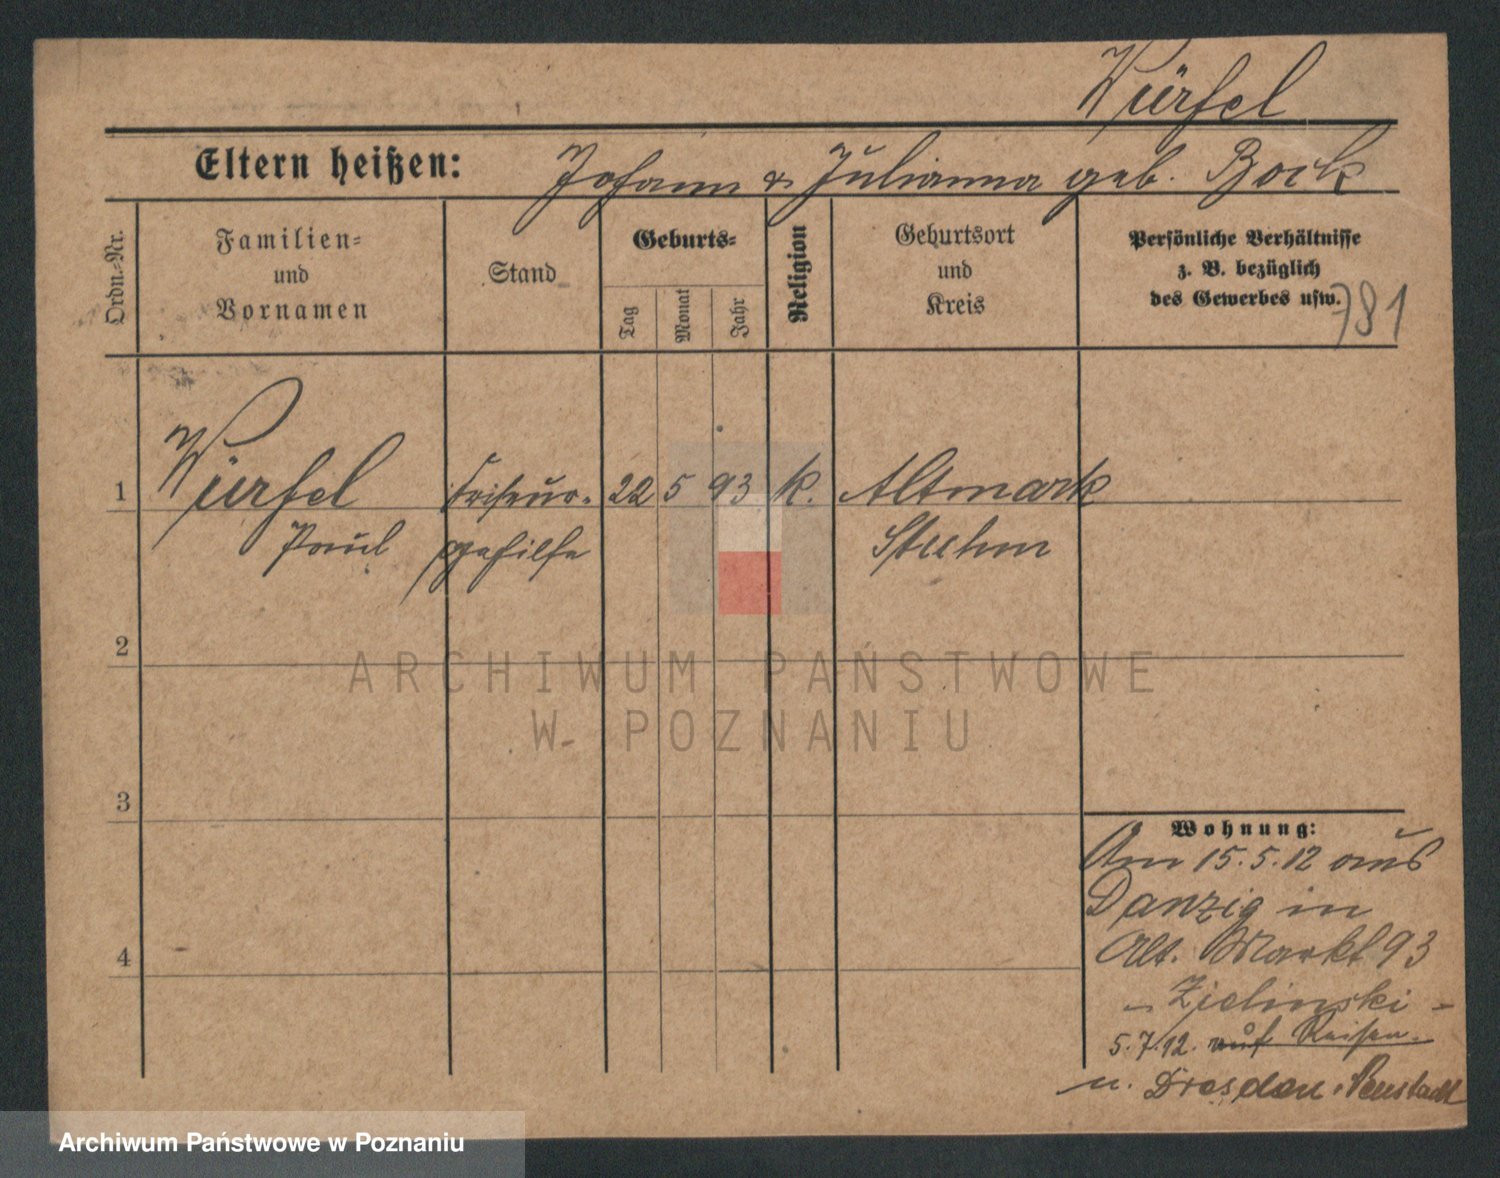 Würfel
Eltern heißen: Johann & Julianna geb. Bock
Ordn.-Nr.
Familien-
und
Vornamen
Stand
Geburts-
Tag
Monat
Jahr
Religion
Geburtsort
und
Kreis
Persönliche Verhältnisse
z. B. bezüglich
des Gewerbes usw.
781
1 Würfel Friseur- 22 5 93 k. Altmark
Paul gehilfe Stuhm
2
3
4
Wohnung:
Am 15.5.12 aus
Danzig in
Alt. Markt 93
- Zielinski -
5.7.12. auf Reisen.
n. Dresden-Neustadt
ARCHIWUM PAŃSTWOWE
W POZNANIU
Archiwum Państwowe w Poznaniu